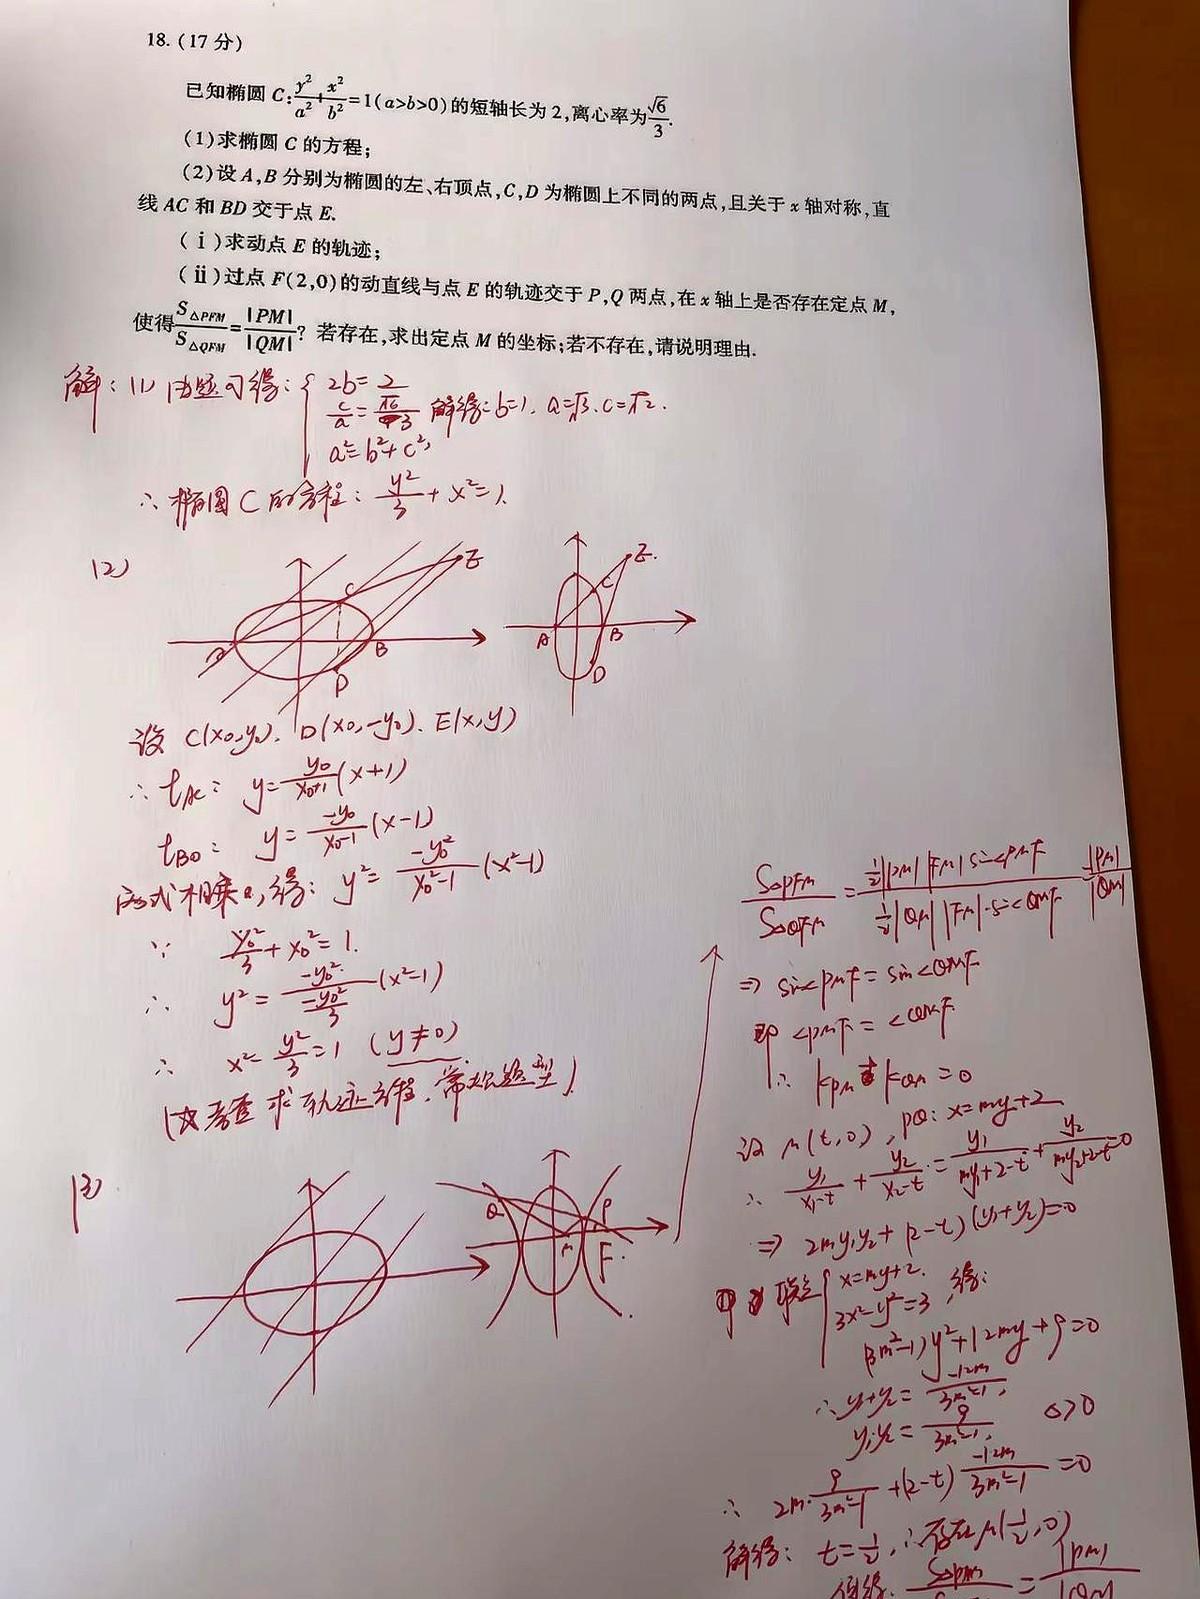 18.(17分)
已知椭圆 C:y²/a²+x²/b²=1(a>b>0)的短轴长为2,离心率为√6/3.
(1)求椭圆 C 的方程;
(2)设 A,B 分别为椭圆的左、右顶点,C,D 为椭圆上不同的两点,且关于 x 轴对称,直
线 AC 和 BD 交于点 E.
(ⅰ)求动点 E 的轨迹;
(ⅱ)过点 F(2,0)的动直线与点 E 的轨迹交于 P,Q 两点,在 x 轴上是否存在定点 M,
使得S△PFM/S△QFM=|PM|/|QM|? 若存在,求出定点 M 的坐标;若不存在,请说明理由.
解:(1)由题可得:{2b=2
c/a=√6/3 解得:b=1. a=√3. c=√2.
a²=b²+c²,
∴椭圆C的方程:y²/3+x²=1.
(2)
C E
B
D
E.
C
A B
D
设 C(x₀,y₀). D(x₀,-y₀). E(x,y)
∴ lAC: y=y₀/(x₀+1)(x+1)
lBD: y=-y₀/(x₀-1)(x-1)
两式相乘,得: y²=-y₀²/(x₀²-1)(x²-1)
∵ y₀²/3+x₀²=1.
∴ y²=-y₀²/(-y₀²/3)(x²-1)
∴ x²-y²/3=1 (y≠0)
(☆考查求轨迹方程,常规题型)
(3)
Q P
M F
S△PFM/S△QFM=½|PM||FM|sin<PMF/½|QM||FM|·sin<QMF=|PM|/|QM|
⇒ sin<PMF=sin<QMF
即 <PMF=<QMF
∴ kPM+kQM=0
设 M(t,0), PQ: x=my+2
∴ y₁/(x₁-t)+y₂/(x₂-t)=y₁/(my₁+2-t)+y₂/(my₂+2-t)=0
⇒ 2my₁y₂+(2-t)(y₁+y₂)=0
联立{x=my+2.
3x²-y²=3,得:
(3m²-1)y²+12my+9=0
∴ y₁+y₂=-12m/(3m²-1),
y₁y₂=9/(3m²-1), △>0
∴ 2m·9/(3m²-1)+(2-t)-12m/(3m²-1)=0
解得: t=½,∴存在M(½,0)
使得: S△PFM/=|PM|/|QM